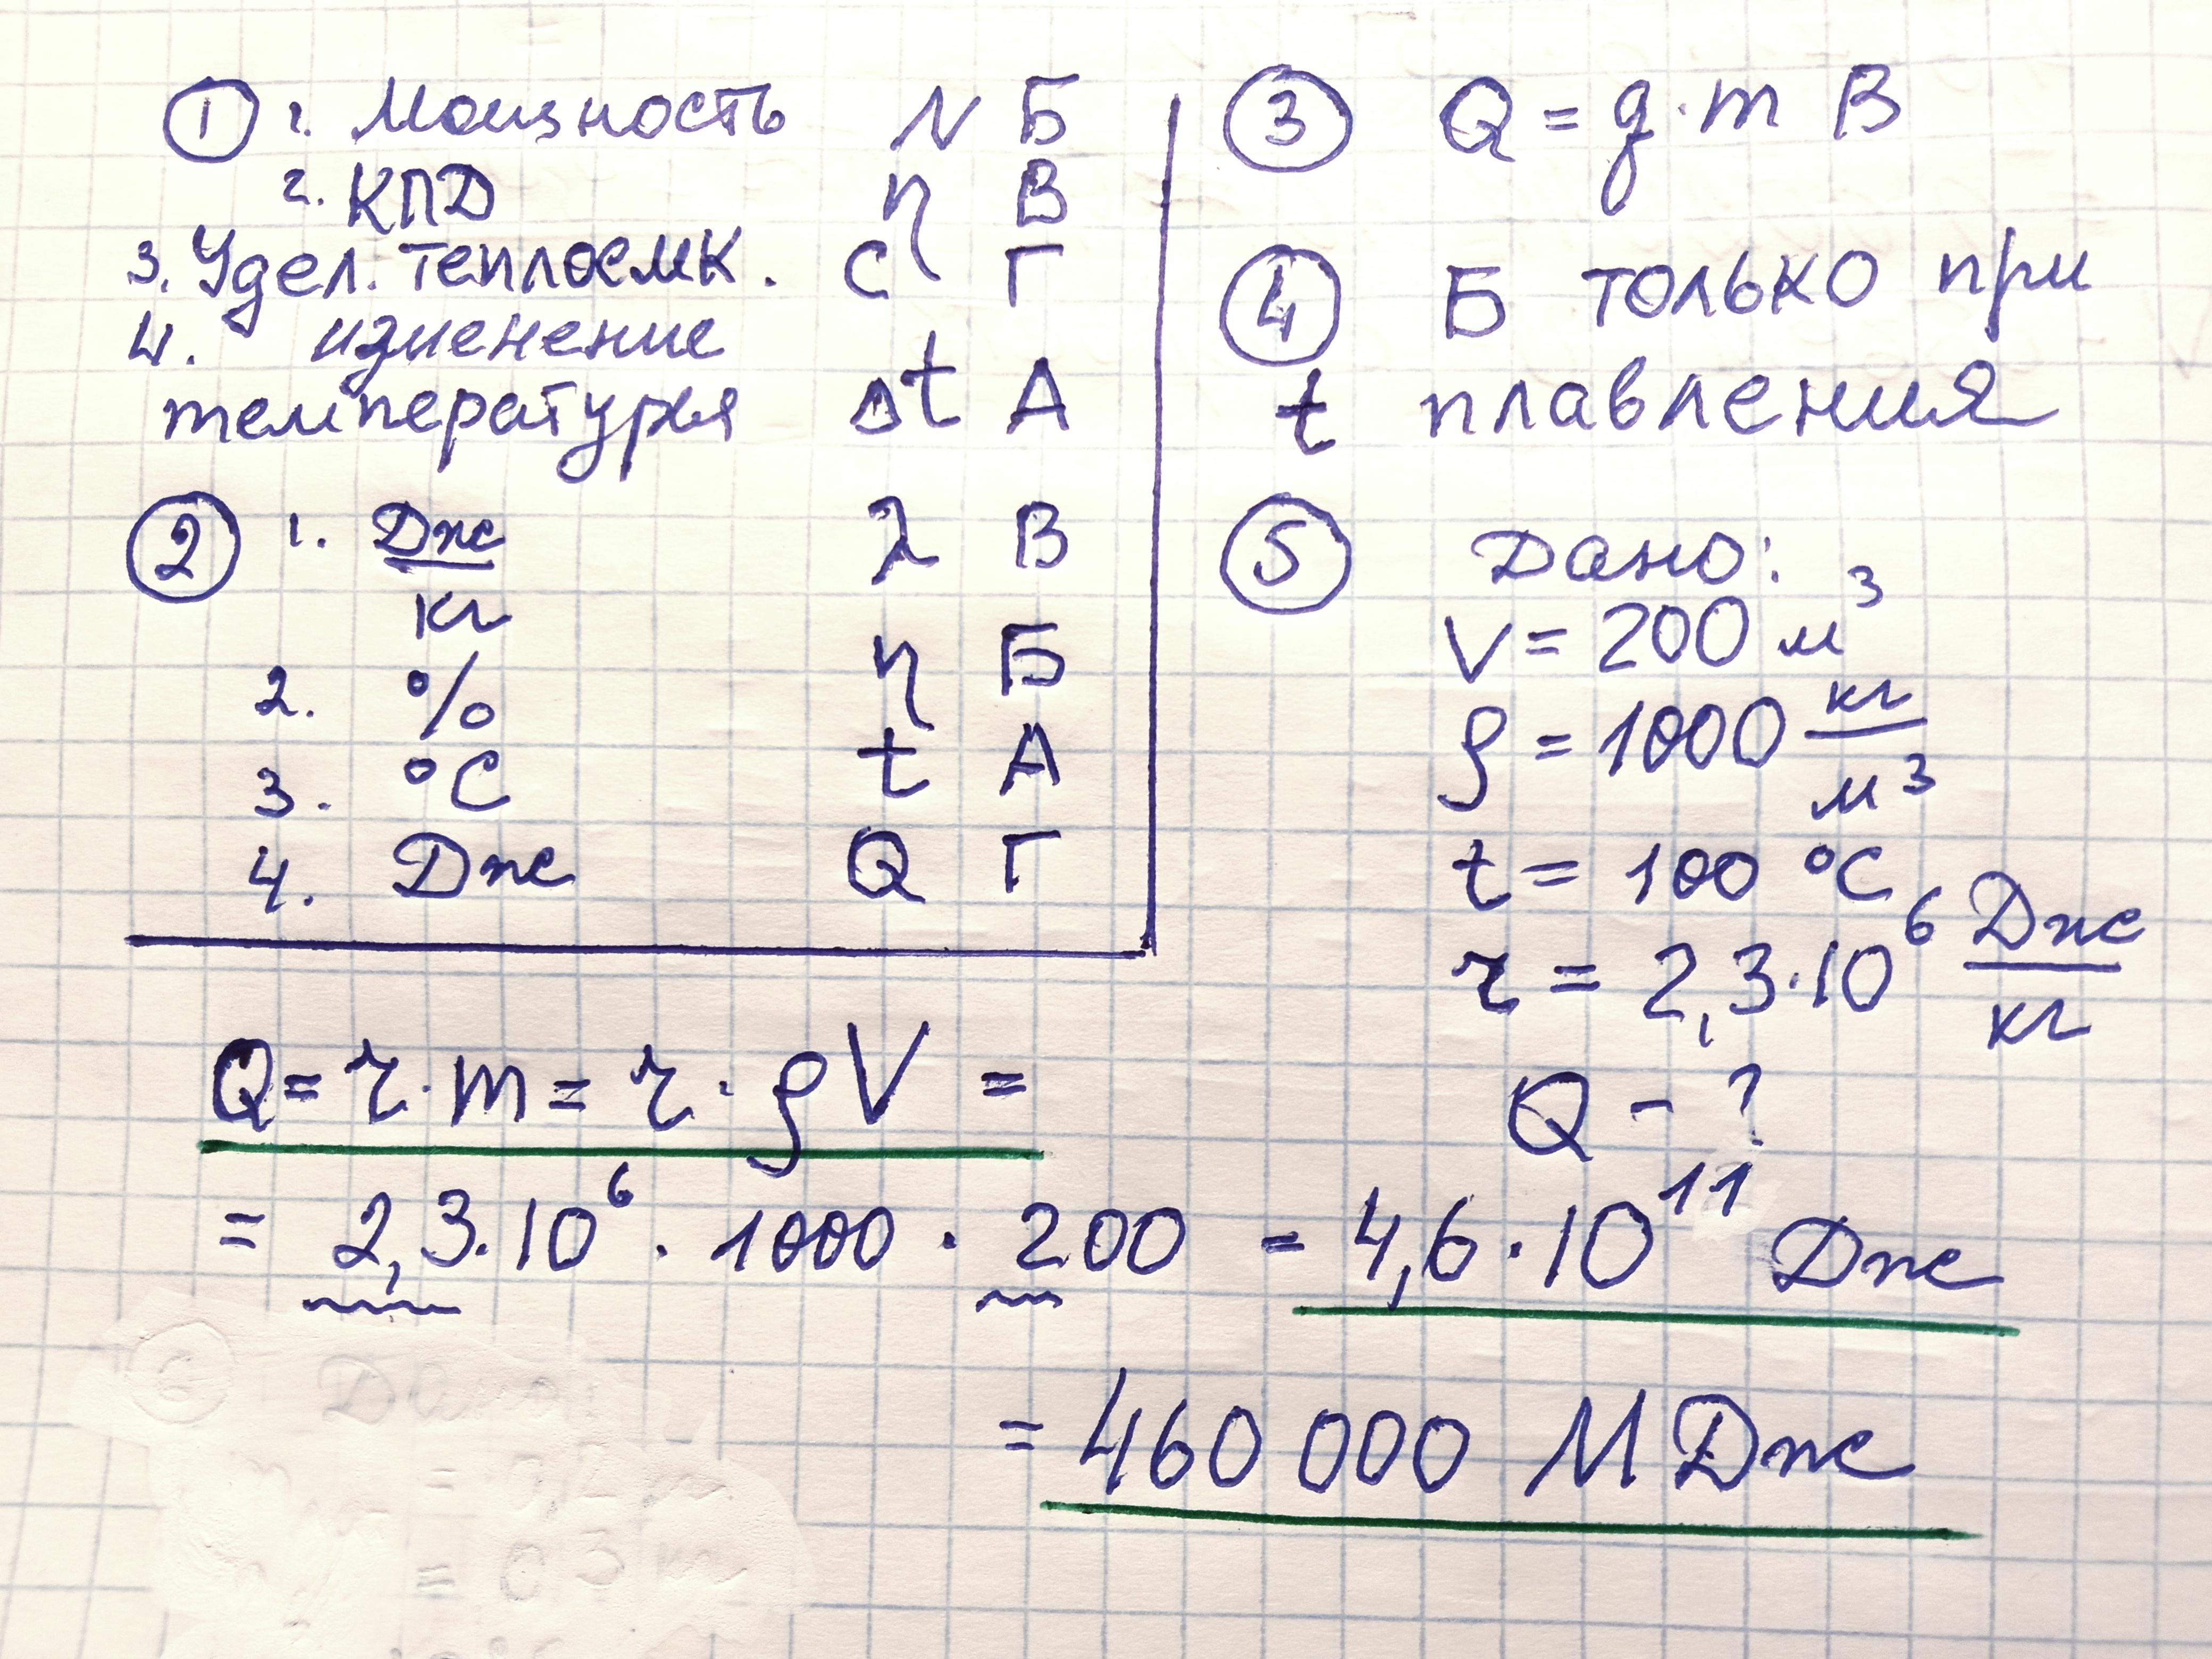 ① 1. Мощность N Б
2. КПД η В
3. Удел. теплоемк. c Г
4. изменение
температуры Δt А
② 1. Дж/кг λ В
2. % η Б
3. °C t А
4. Дж Q Г
③ Q = q·m В
④ Б только при
t плавления
⑤ Дано:
V = 200 м³
ρ = 1000 кг/м³
t = 100 °C
r = 2,3·10⁶ Дж/кг
Q - ?
Q = r·m = r·ρV =
= 2,3·10⁶ · 1000 · 200 = 4,6·10¹¹ Дж
= 460 000 МДж